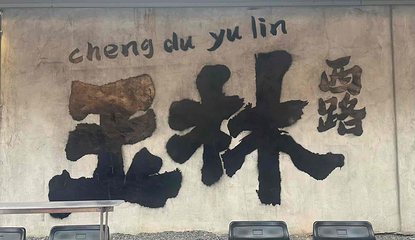 cheng du yu lin
玉林
西路